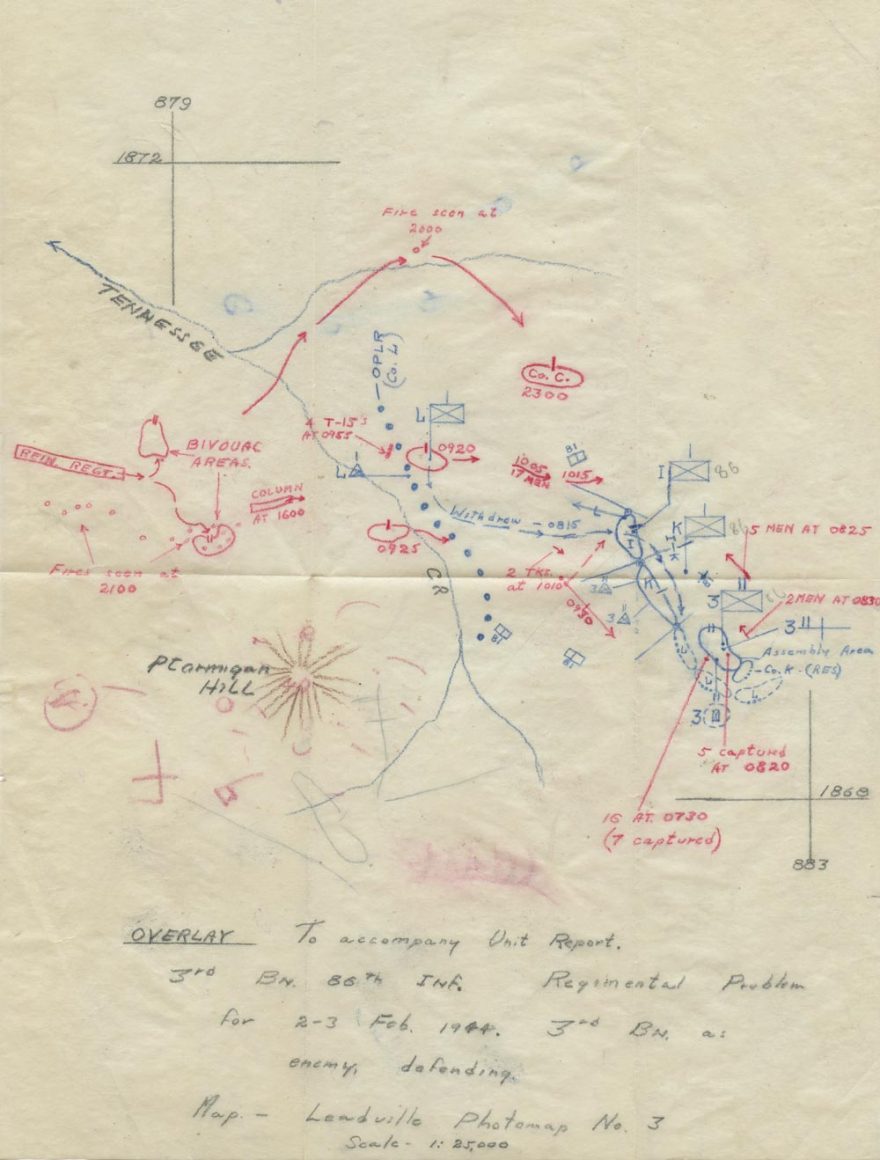 879
1872
Fire seen at
2000
TENNESSEE
OPLR
(Co. L)
Co. C.
2300
4 T-15's
AT 0955
L
0920
REIN. REGT.
BIVOUAC
AREAS.
COLUMN
AT 1600
L
1005
17 MEN
1015
81
I
86
Withdrew - 0815
L
K
86
5 MEN AT 0825
0925
I-K
Fires seen at
2100
CR
2 TKS.
at 1010
0930
3
3
3
86
2 MEN AT 0830
3
81
81
Assembly Area
Co. K. (RES)
L
3
Ptarmigan
HILL
5 captured
AT 0820
1868
16 AT. 0730
(7 captured)
883
OVERLAY To accompany Unit Report.
3rd BN. 86th INF. Regimental Problem
for 2-3 Feb. 1944. 3rd BN. as
enemy, defending.
Map. - Leadville Photomap No. 3
Scale - 1: 25,000